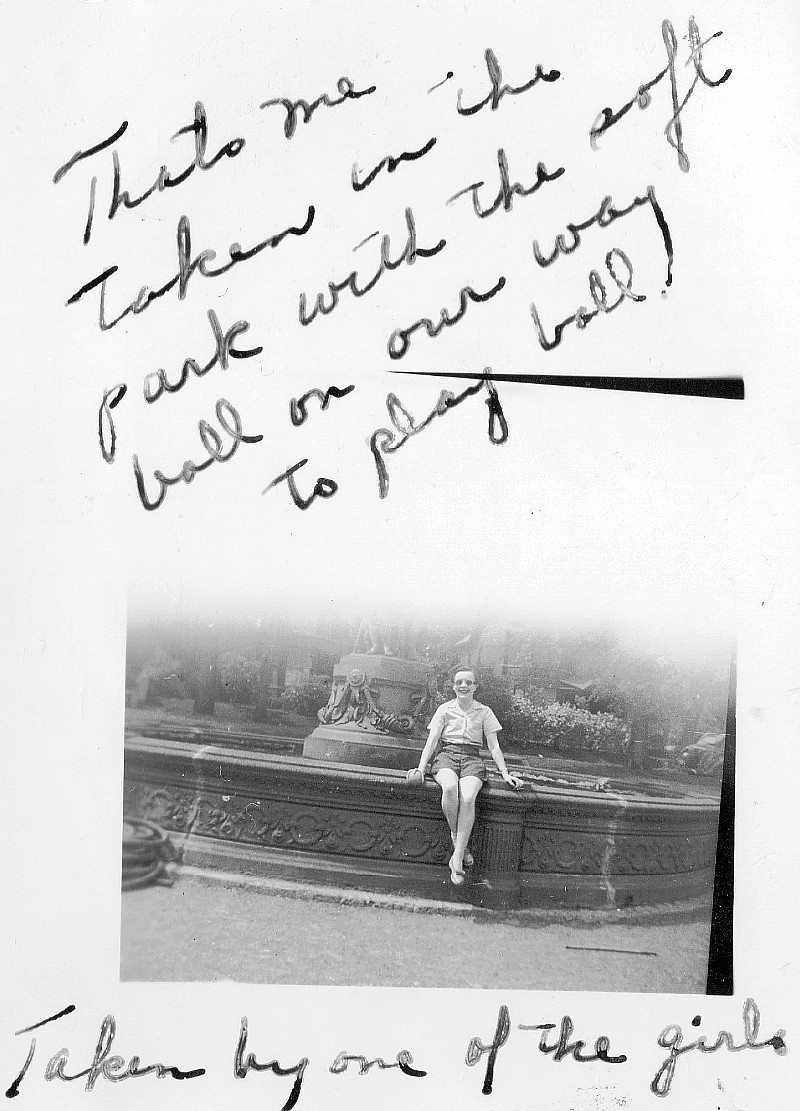 Thats me
taken in the
park with the soft
ball on our way
to play ball!
Taken by one of the girls